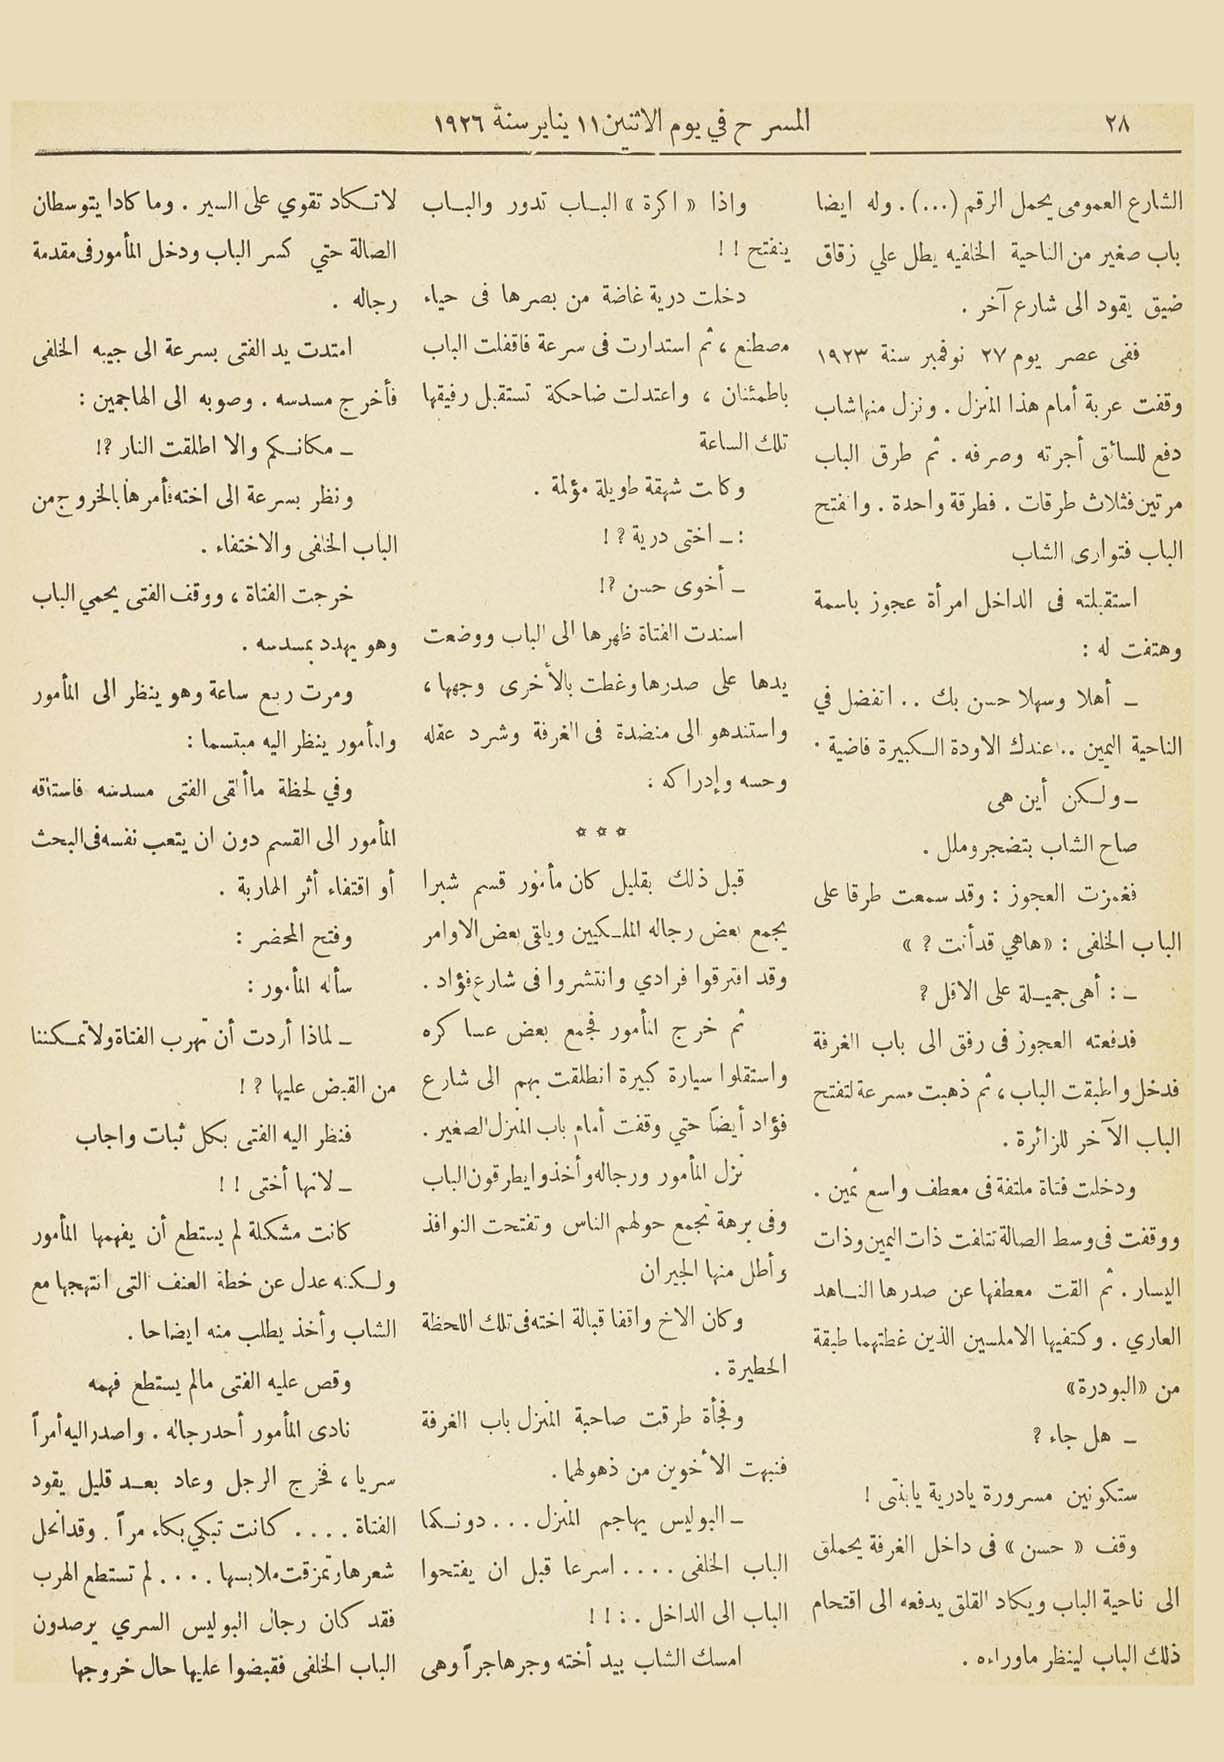 ٢٨
المسرح في يوم الاثنين ١١ يناير سنة ١٩٢٦
الشارع العمومى يحمل الرقم (...) . وله ايضا
باب صغير من الناحية الخلفيه يطل علي زقاق
ضيق يقود الى شارع آخر .
ففى عصر يوم ٢٧ نوفمبر سنة ١٩٢٣
وقفت عربة أمام هذا المنزل . ونزل منها شاب
دفع للسائق أجرته وصرفه . ثم طرق الباب
مرتين فثلاث طرقات . فطرقة واحدة . وانفتح
الباب فتوارى الشاب
استقبلته فى الداخل امرأة عجوز باسمة
وهتفت له :
ـ أهلا وسهلا حسن بك .. اتفضل في
الناحية اليمين .. عندك الاودة الكبيرة فاضية .
ـ ولكن أين هى
صاح الشاب بتضجر وملل .
فغمزت العجوز : وقد سمعت طرقا على
الباب الخلفى : «هاهي قد أتت ? »
ـ : أهى جميلة على الاقل ?
فدفعته العجوز فى رفق الى باب الغرفة
فدخل واطبقت الباب ، ثم ذهبت مسرعة لتفتح
الباب الآخر للزائرة .
ودخلت فتاة ملتفة فى معطف واسع ثمين .
ووقفت فى وسط الصالة تتلفت ذات اليمين وذات
اليسار . ثم القت معطفها عن صدرها الناهد
العاري . وكتفيها الاملسين الذين غطتهما طبقة
من «البودرة»
ـ هل جاء ?
ستكونين مسرورة يادرية يابنتى !
وقف « حسن » فى داخل الغرفة يحملق
الى ناحية الباب ويكاد القلق يدفعه الى اقتحام
ذلك الباب لينظر ماوراءه .
واذا « اكرة » الباب تدور والباب
ينفتح ! !
دخلت درية غاضة من بصرها فى حياء
مصطنع ، ثم استدارت فى سرعة فاقفلت الباب
باطمئنان ، واعتدلت ضاحكة تستقبل رفيقها
تلك الساعة
وكانت شهقة طويلة مؤلمة .
: ـ اختى درية ? !
ـ أخوى حسن ?!
اسندت الفتاة ظهرها الى الباب ووضعت
يدها على صدرها وغطت بالأخرى وجهها ،
واستند هو الى منضدة فى الغرفة وشرد عقله
وحسه وإدراكه .
* * *
قبل ذلك بقليل كان مأمور قسم شبرا
يجمع بعض رجاله الملكيين ويلقى بعض الاوامر
وقد افترقوا فرادي وانتشروا فى شارع فؤاد .
ثم خرج المأمور فجمع بعض عساكره
واستقلوا سيارة كبيرة انطلقت بهم الى شارع
فؤاد أيضاً حتي وقفت أمام باب المنزل الصغير .
نزل المأمور ورجاله وأخذوا يطرقون الباب
وفى برهة تجمع حولهم الناس وتفتحت النوافذ
وأطل منها الجيران
وكان الاخ واقفا قبالة اخته فى تلك اللحظة
الخطيرة .
وفجأة طرقت صاحبة المنزل باب الغرفة
فنبهت الأخوين من ذهولهما .
ـ البوليس يهاجم المنزل . . . دونكما
الباب الخلفى . . . . اسرعا قبل ان يفتحوا
الباب الى الداخل . . ! ! !
امسك الشاب بيد أخته وجرها جراً وهى
لاتكاد تقوي على السير . وما كادا يتوسطان
الصالة حتي كسر الباب ودخل المأمور فى مقدمة
رجاله .
امتدت يد الفتى بسرعة الى جيبه الخلفى
فأخرج مسدسه . وصوبه الى الهاجمين :
ـ مكانكم والا اطلقت النار ?!
ونظر بسرعة الى اخته فأمرها بالخروج من
الباب الخلفى والاختفاء .
خرجت الفتاة ، ووقف الفتى يحمي الباب
وهو يهدد بمسدسه .
ومرت ربع ساعة وهو ينظر الى المأمور
والمأمور ينظر اليه مبتسما :
وفي لحظة ما ألقى الفتى مسدسه فاستاقه
المأمور الى القسم دون ان يتعب نفسه فى البحث
أو اقتفاء أثر الهاربة .
وفتح المحضر :
سأله المأمور :
ـ لماذا أردت أن تهرب الفتاة ولا تمكننا
من القبض عليها ? !
فنظر اليه الفتى بكل ثبات واجاب
ـ لانها أختى ! !
كانت مشكلة لم يستطع أن يفهمها المأمور
ولكنه عدل عن خطة العنف التى انتهجها مع
الشاب وأخذ يطلب منه ايضاحا .
وقص عليه الفتى مالم يستطع فهمه
نادى المأمور أحد رجاله . واصدر اليه أمراً
سريا ، فخرج الرجل وعاد بعد قليل يقود
الفتاة . . . . كانت تبكي بكاء مراً . وقد انحل
شعرها وتمزقت ملابسها . . . . لم تستطع الهرب
فقد كان رجال البوليس السري يرصدون
الباب الخلفى فقبضوا عليها حال خروجها